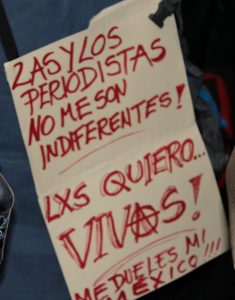 LAS Y LOS
PERIODISTAS
NO ME SON
INDIFERENTES!
LXS QUIERO...
VIVAS!
ME DUELES MI
MÉXICO!!!